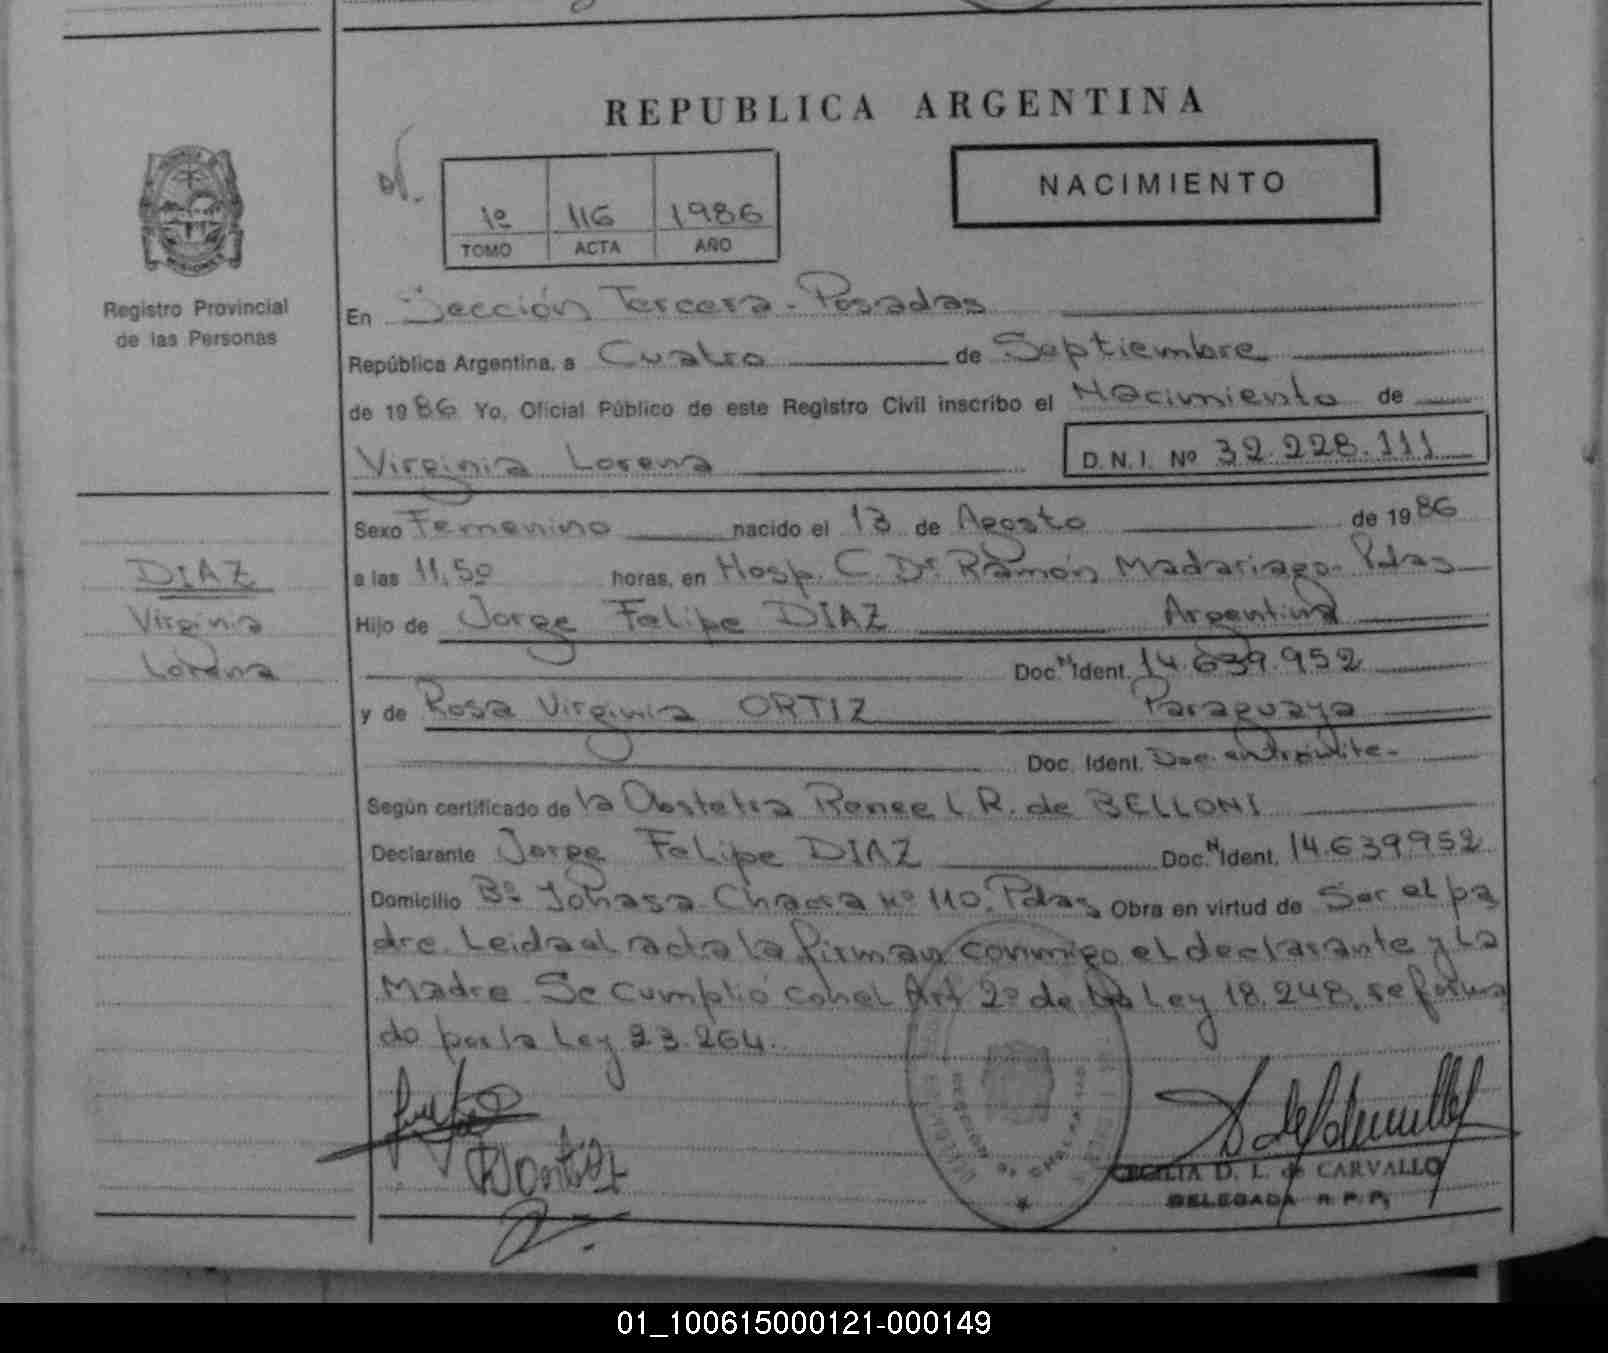 REPUBLICA ARGENTINA
NACIMIENTO
1º 116 1986
TOMO ACTA AÑO
Registro Provincial
de las Personas
En Sección Tercera - Posadas
República Argentina, a Cuatro de Septiembre
de 1986 Yo, Oficial Público de este Registro Civil inscribo el Nacimiento de
Virginia Lorena D.N.I. Nº 32.228.111
Sexo Femenino nacido el 13 de Agosto de 1986
a las 11,50 horas, en Hosp. C. Dr Ramón Madariaga - Pdas
Hijo de Jorge Felipe DIAZ Argentina
Doc. N Ident. 14.639.952
y de Rosa Virginia ORTIZ Paraguaya
Doc. Ident. Doc. en trámite -
Según certificado de la Obstetra Renee L. R. de BELLONI
Declarante Jorge Felipe DIAZ Doc. N Ident. 14.639952
Domicilio Bº Yohasa Chacra Nº 110. Pdas Obra en virtud de Ser el pa
dre. Leida el acta la firman conmigo el declarante y la
Madre. Se cumplió con el Art 2º de la Ley 18.248, reforma
do por la Ley 23.264.
DIAZ
Virginia
Lorena
CECILIA D. L. de CARVALLO
DELEGADA R. P. P.
01_100615000121-000149